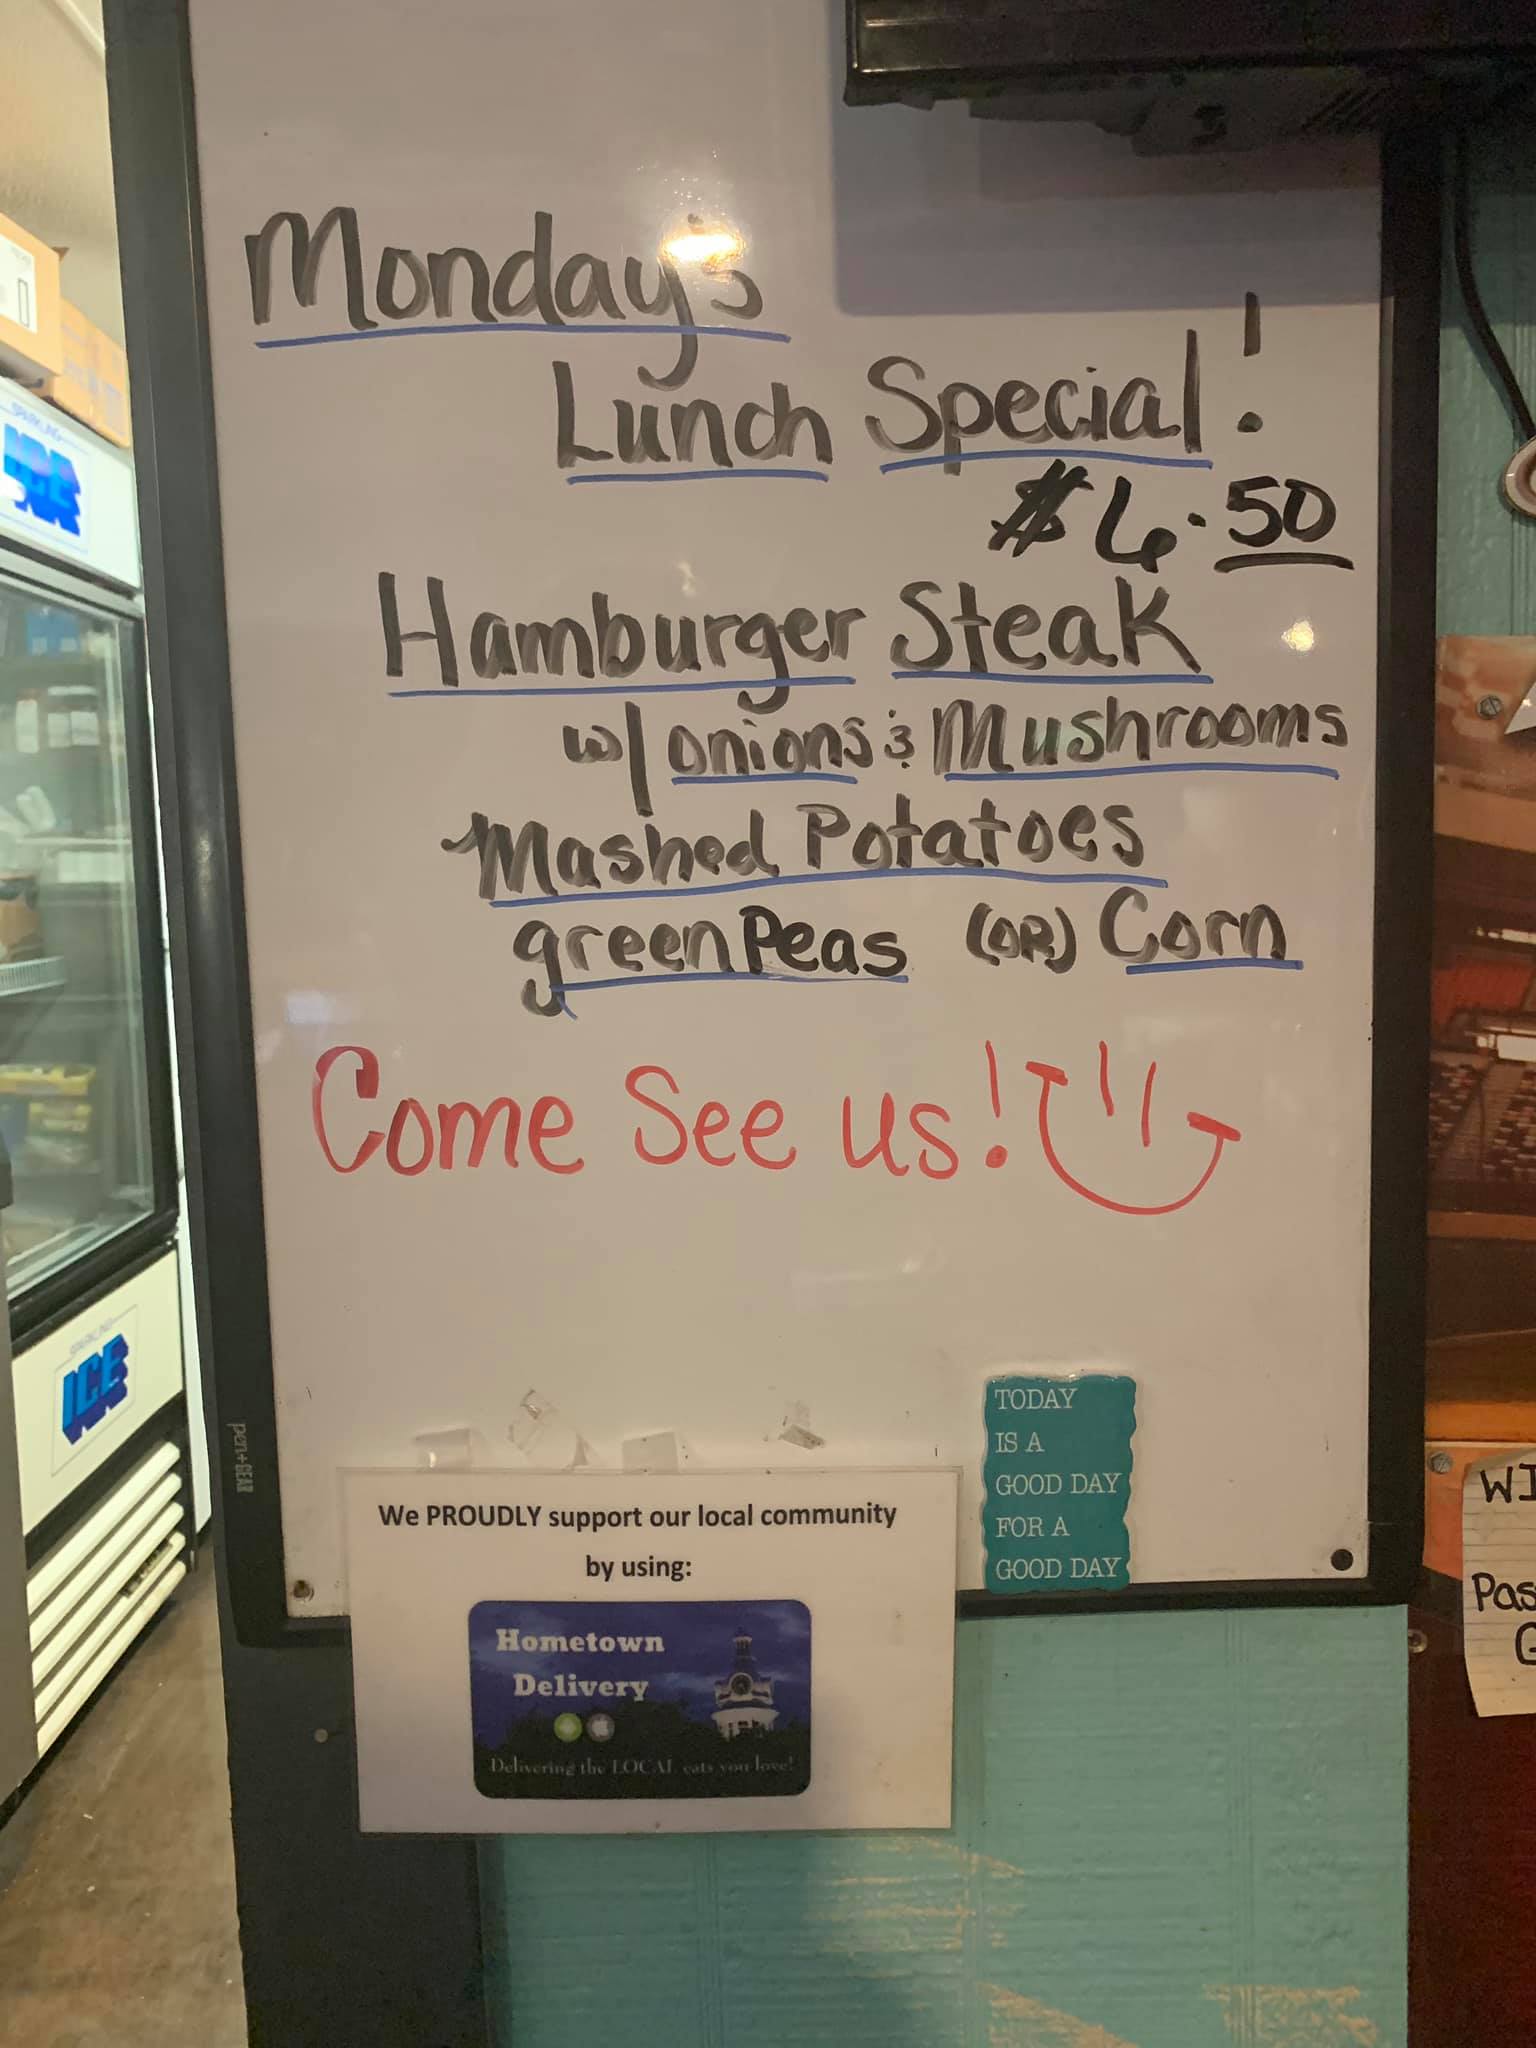 Monday's
Lunch Special!
$6.50
Hamburger Steak
w/ onions & Mushrooms
Mashed Potatoes
green Peas (OR) Corn
Come See us!
TODAY
IS A
GOOD DAY
FOR A
GOOD DAY
We PROUDLY support our local community
by using:
Hometown
Delivery
Delivering the LOCAL eats you love!
pen+GEAR
ICE
SPARKLING
ICE
WI
Pas
G